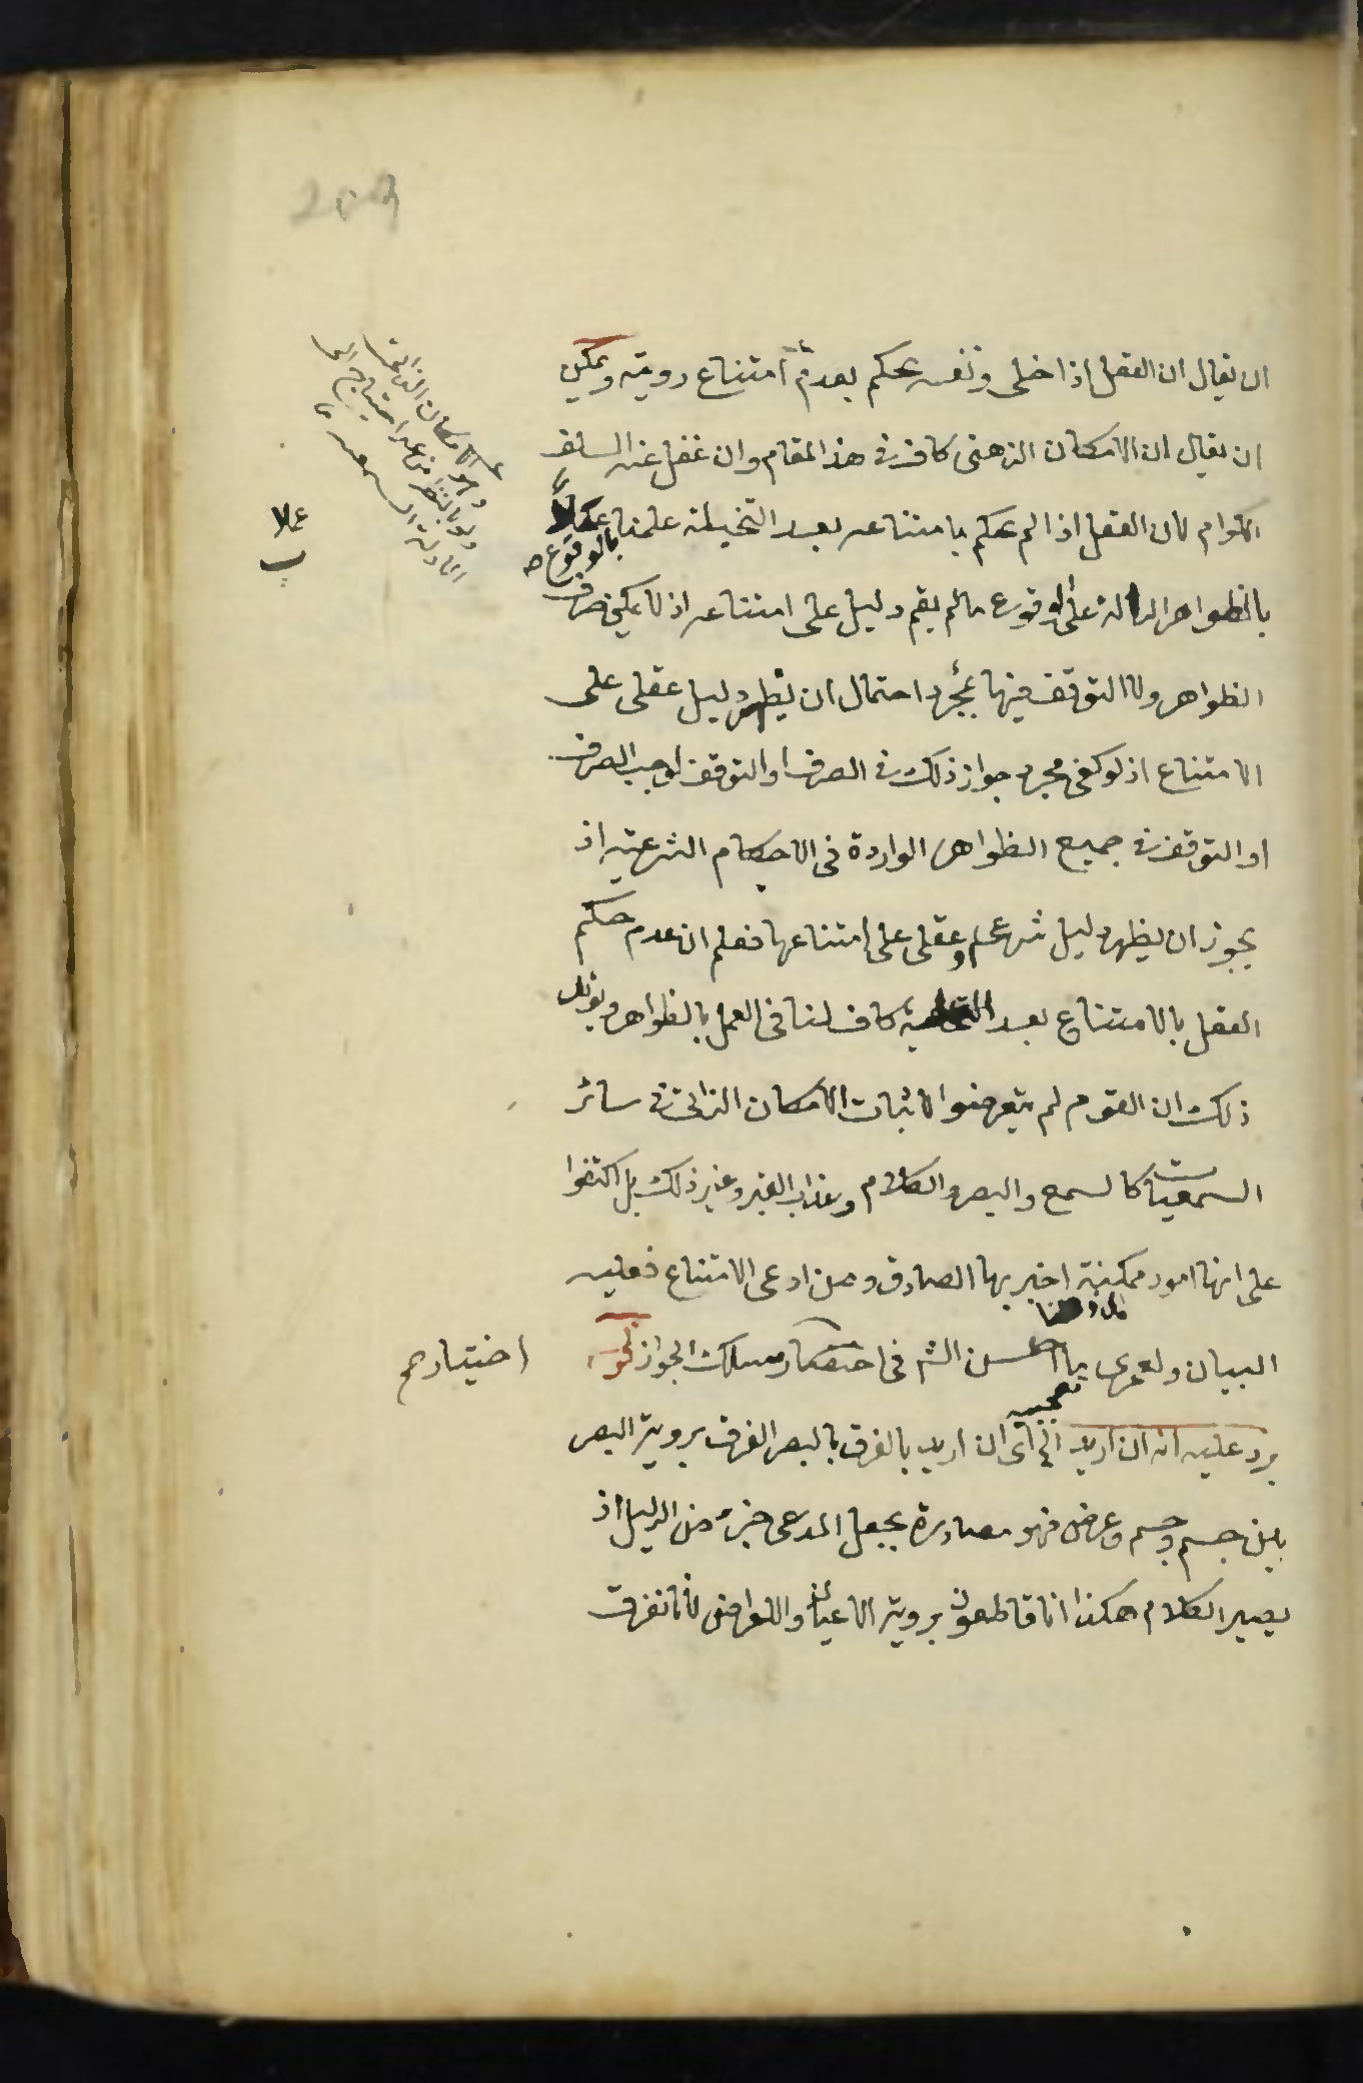 ان يقال ان العقل اذا خلى ونفسه يحكم بعدم امتناع رويته ويمكن
ان يقال ان الامكان الذهنى كاف فى هذا المقام وان غفل عنه السلف
الكرام لان العقل اذا لم يحكم بامتناعه بعد التخيلة علمنا عملا
بالوقوع
بالظواهر الدالة على الوقوع ما لم يقم دليل على امتناعه اذ لا يمكن صرف
الظواهر ولا التوقف فيها بمجرد احتمال ان يظهر دليل عقلى على
الامتناع اذ لو كفى مجرد جواز ذلك فى الصرف او التوقف لوجب الصرف
او التوقف فى جميع الظواهر الواردة فى الاحكام الشرعية اذ
يجوز ان يظهر دليل شرعى وعقلى على امتناعها فعلم ان عدم حكم
العقل بالامتناع بعد كاف لنا فى العمل بالظواهر ويؤيد
ذلك ان القوم لم يتعرضوا لاثبات الامكان الذاتى فى سائر
السمعيات كالسمع والبصر والكلام وعذاب القبر وغير ذلك بل اكتفوا
على انها امور ممكنة اخبر بها الصادق ومن ادعى الامتناع فعليه
البيان ولعمرى ما احسن الش فى مسلك الجواز
اختيارهم
يرد عليه انه ان اريد الخ اى ان اريد بالفرق بالبصر الفرق بروية البصر
بين جسم وجسم وعرض فهو مصادرة بجعل المدعى جزء من الدليل اذ
يصير الكلام هكذا انا قاطعون بروية الاعيان والاعراض لانا نفرق
عملا
ب
على الامكان الذاتى